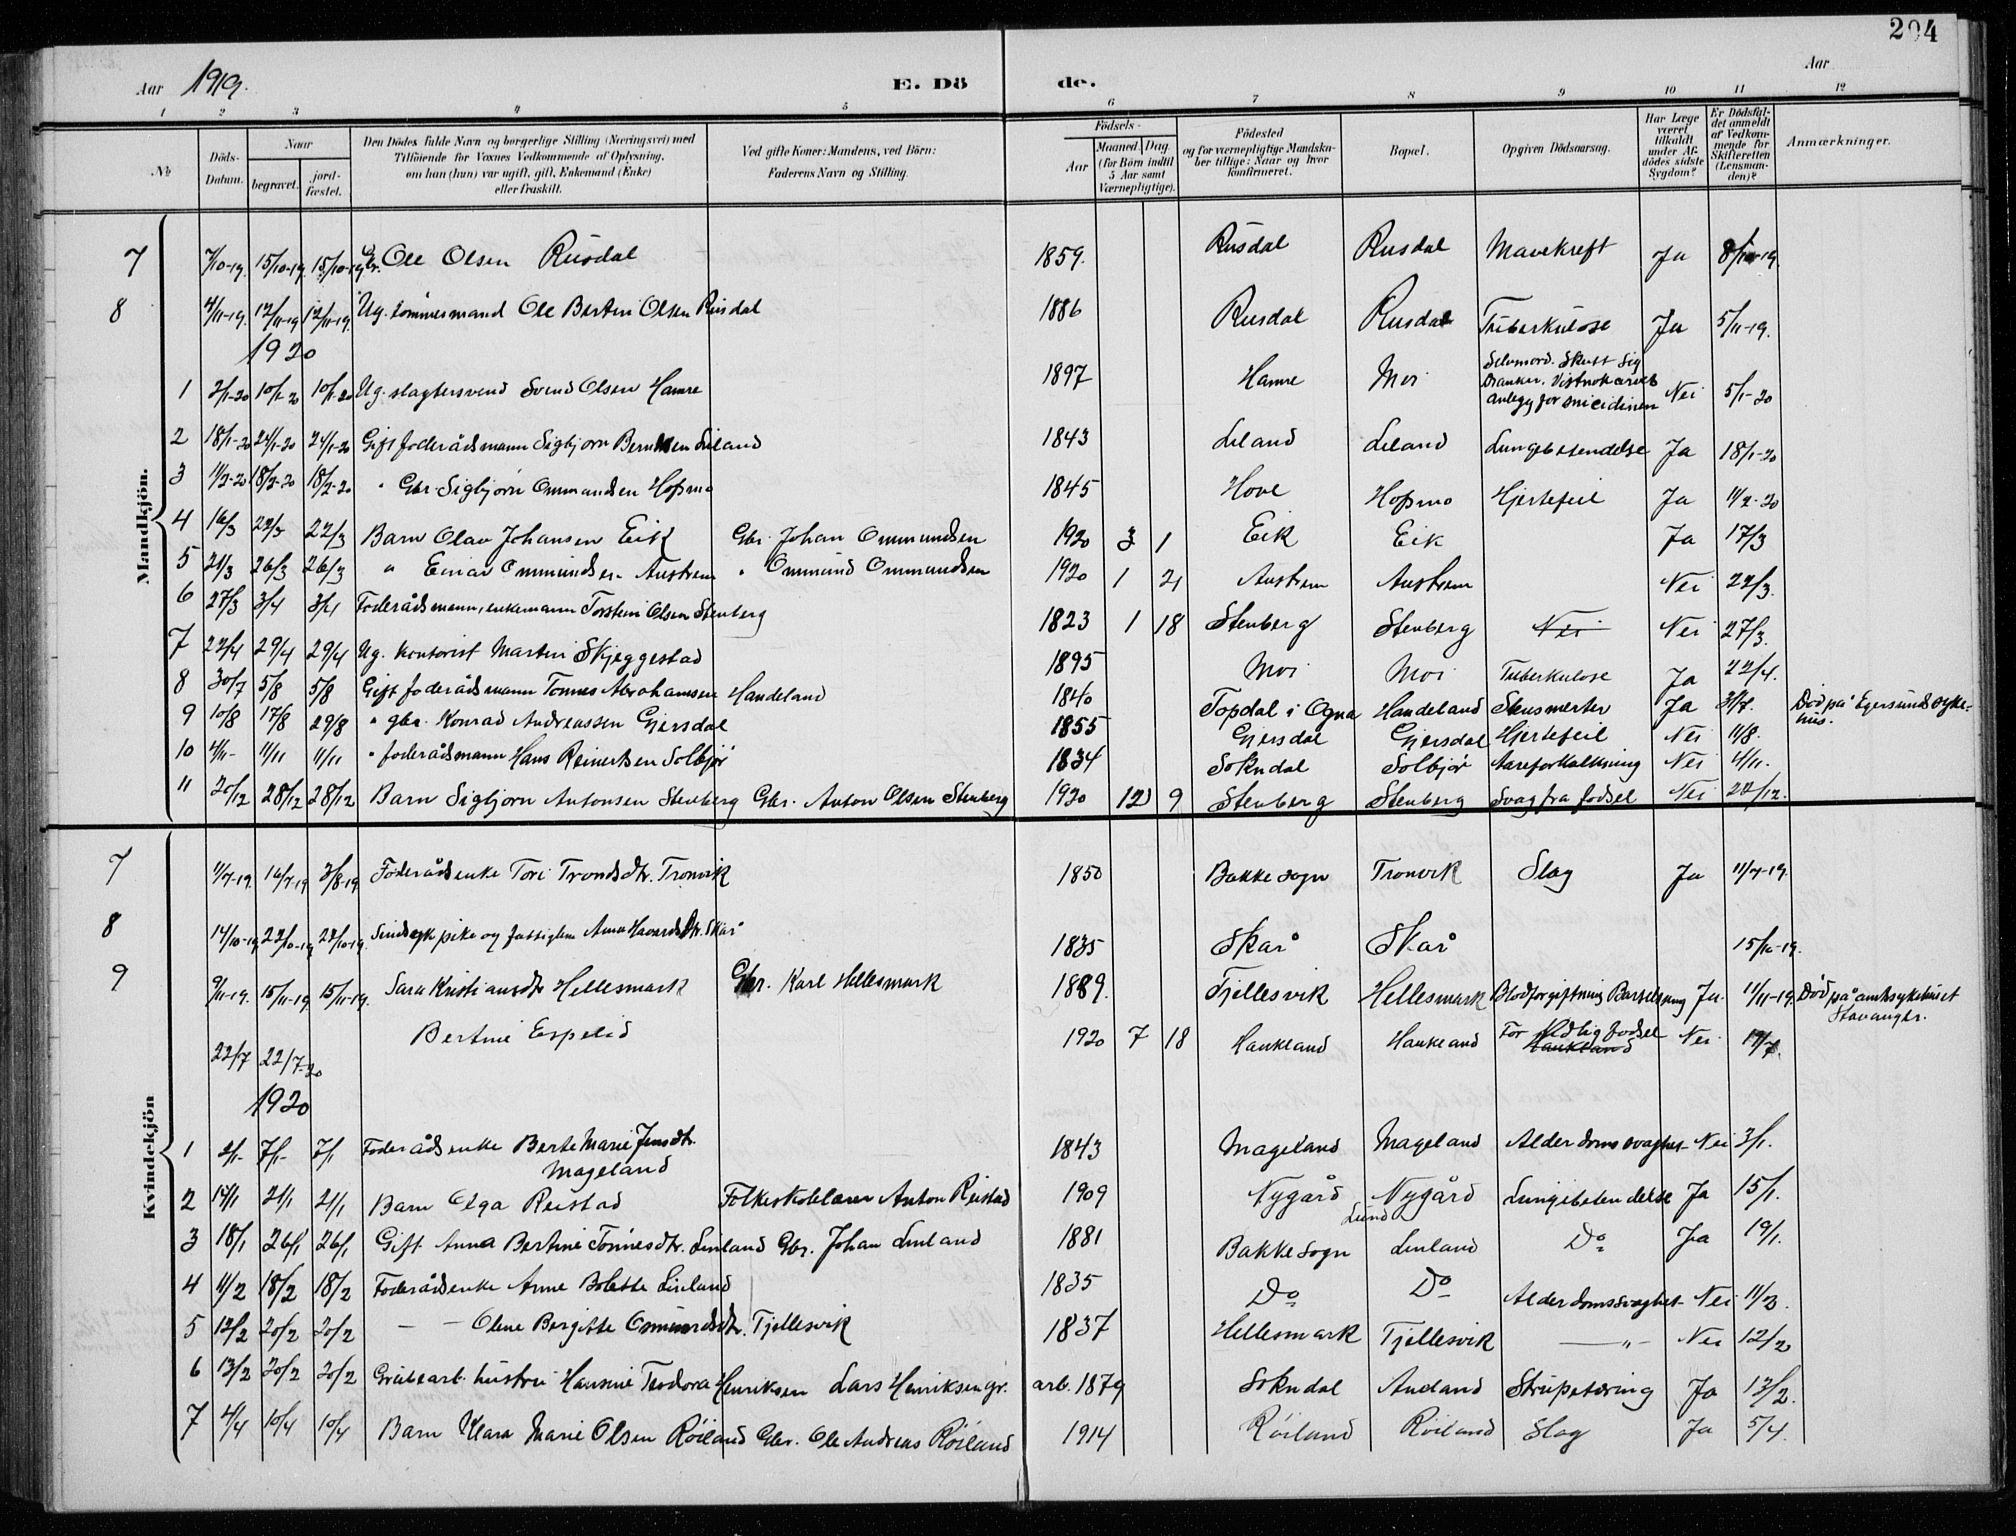 204
Aar 1919. E. Dö de. Aar
1 2 3 4 5 6 7 8 9 10 11 12
№ Döds-Datum. Naar begravet. jord-fæstet. Den Dödes fulde Navn og borgerlige Stilling (Næringsvei) med Tilföiende for Voxnes Vedkommende af Oplysning, om han (hun) var ugift, gift, Enkemand (Enke) eller fraskilt. Ved gifte Koner: Mandens, ved Börn: Faderens Navn og Stilling. Födsels- Aar Maaned Dag (for Börn indtil 5 Aar samt Værnepligtige). Födested og for værnepligtige Mandska-ber tillige: Naar og hvor konfirmeret. Bopæl. Opgiven Dödsaarsag. Har Læge været tilkaldt under Af-dödes sidste Sygdom? Er Dödsfal-det anmeldt af Vedkom-mende for Skifteretten (Lensman-den)? Anmærkninger.
Mandkjön.
7 7/10-19. 15/10-19. 15/10-19 Gbr. Ole Olsen Rusdal 1859. Rusdal Rusdal Mavekreft Ja 8/10-19.
8 4/11-19. 12/11-19 12/11-19. Ug. tømmermand Ole Bertin Olsen Rusdal 1886 Rusdal Rusdal Tuberkulose Ja 5/11-19.
1920
1 2/1-20 10/1-20 10/1-20 Ug. slagtersvend Svend Olsen Hamre 1897 Hamre Moi Selvmord. Skutt sig Dranker. Vistnok arvet anlegg for Nei 5/1-20
2 18/1-20 24/1-20 24/1-20 Gift foderådsmann Sigbjorn Berntsen Leland 1843 Leland Leland Lungebetendelse Ja 18/1-20
3 11/2-20 18/2-20 18/2-20 " Gbr. Sigbjorn Ommundsen Hofsmo 1845 Hove Hofsmo Hjertefeil Ja 11/2-20
4 16/3 22/3 22/3 Barn Olav Johansen Eik Gbr. Johan Ommundsen 1920 3 1 Eik Eik Ja 17/3
5 21/3 26/3 26/3 " Einar Ommundsen Austrem " Ommund Ommundsen 1920 1 21 Austrem Austrem Nei 22/3.
6 27/3 3/4 3/4 Foderådsmann, enkemann Torstein Olsen Stenberg 1823 1 18 Stenberg Stenberg Nei Nei 27/3.
7 22/4 29/4 29/4 Ug. kontorist Martin Skjeggestad 1895 Moi Moi Tuberkulose Ja 22/4.
8 30/7 5/8 5/8 Gift foderådsmann Tonnes Abrahamsen Handeland 1840 Topdal i Ogna Handeland Ja 31/7. Död på Egersunds sykehus.
9 10/8 17/8 29/8 " gbr. Konrad Andreassen Gjersdal 1855 Gjersdal Gjersdal Hjertefeil Nei 11/8.
10 4/11- 11/11 11/11 " foderådsmann Hans Reinertsen Solbjör 1834 Sokndal Solbjör Aareforkalkning Nei 4/11.
11 20/12 28/12 28/12 Barn Sigbjorn Antonsen Stenberg Gbr. Anton Olsen Stenberg 1920 12 9 Stenberg Stenberg Svag fra fodsel Nei 22/12.
Kvindekjön
7 11/7-19. 16/7-19 3/8-19 Foderådsenke Tori Trondsdtr. Tronvik 1850 Bakke sogn Tronvik Slag Ja 11/7-19.
8 14/10-19 22/10-19 22/10-19. Sindssyk pike og fattiglem Anna Haavardsdtr. Skår 1835 Skår Skår 15/10-19.
9 9/11-19. 15/11-19 15/11-19. Sara Kristiansdtr Hellesmark Gbr. Karl Hellesmark 1889. Tjellesvik Hellesmark Blodforgiftning Barselseng Ja. 11/11-19. Död på amtssykehuset Stavanger.
22/7 22/7-20 Bertine Espelid 1920 7 18 Haukland Haukeland For tidlig fodsel Haukland Nei 19/7.
1920
1 2/1- 7/1- 7/1 Foderådsenke Berte Marie Jensdtr. Mageland 1843 Mageland Mageland Alderdomssvaghet Nei 3/1.
2 14/1 21/1 21/1 Barn Olga Reistad Folkeskolelærer Anton Reistad 1909 Nygård Nygård Lungebetendelse Ja 15/1.
3 18/1 26/1 26/1 Gift Anna Bertine Tönnesdtr. Linland Gbr. Johan Linland 1881 Bakke sogn Lund Linland Do Ja 19/1.
4 11/2 18/2 18/2 Foderådsenke Anne Bolette Linland 1835 Do Do Alderdomssvaghet Nei 11/2.
5 12/2 20/2 20/2 — — Olene Bergitte Osmundsdtr. Tjellesvik 1837 Hellesmark Tjellesvik — " — Nei 12/2
6 13/2 20/2 20/2 Grubearb. hustru Hansine Teodora Henriksen Lars Henriksen gr. arb. 1879 Sokndal Aueland Strupetæring Ja 13/2.
7 4/4 10/4 10/4 Barn Klara Marie Olsen Röiland Gbr. Ole Andreas Röiland 1914 Röiland Röiland Slag Ja 5/4.